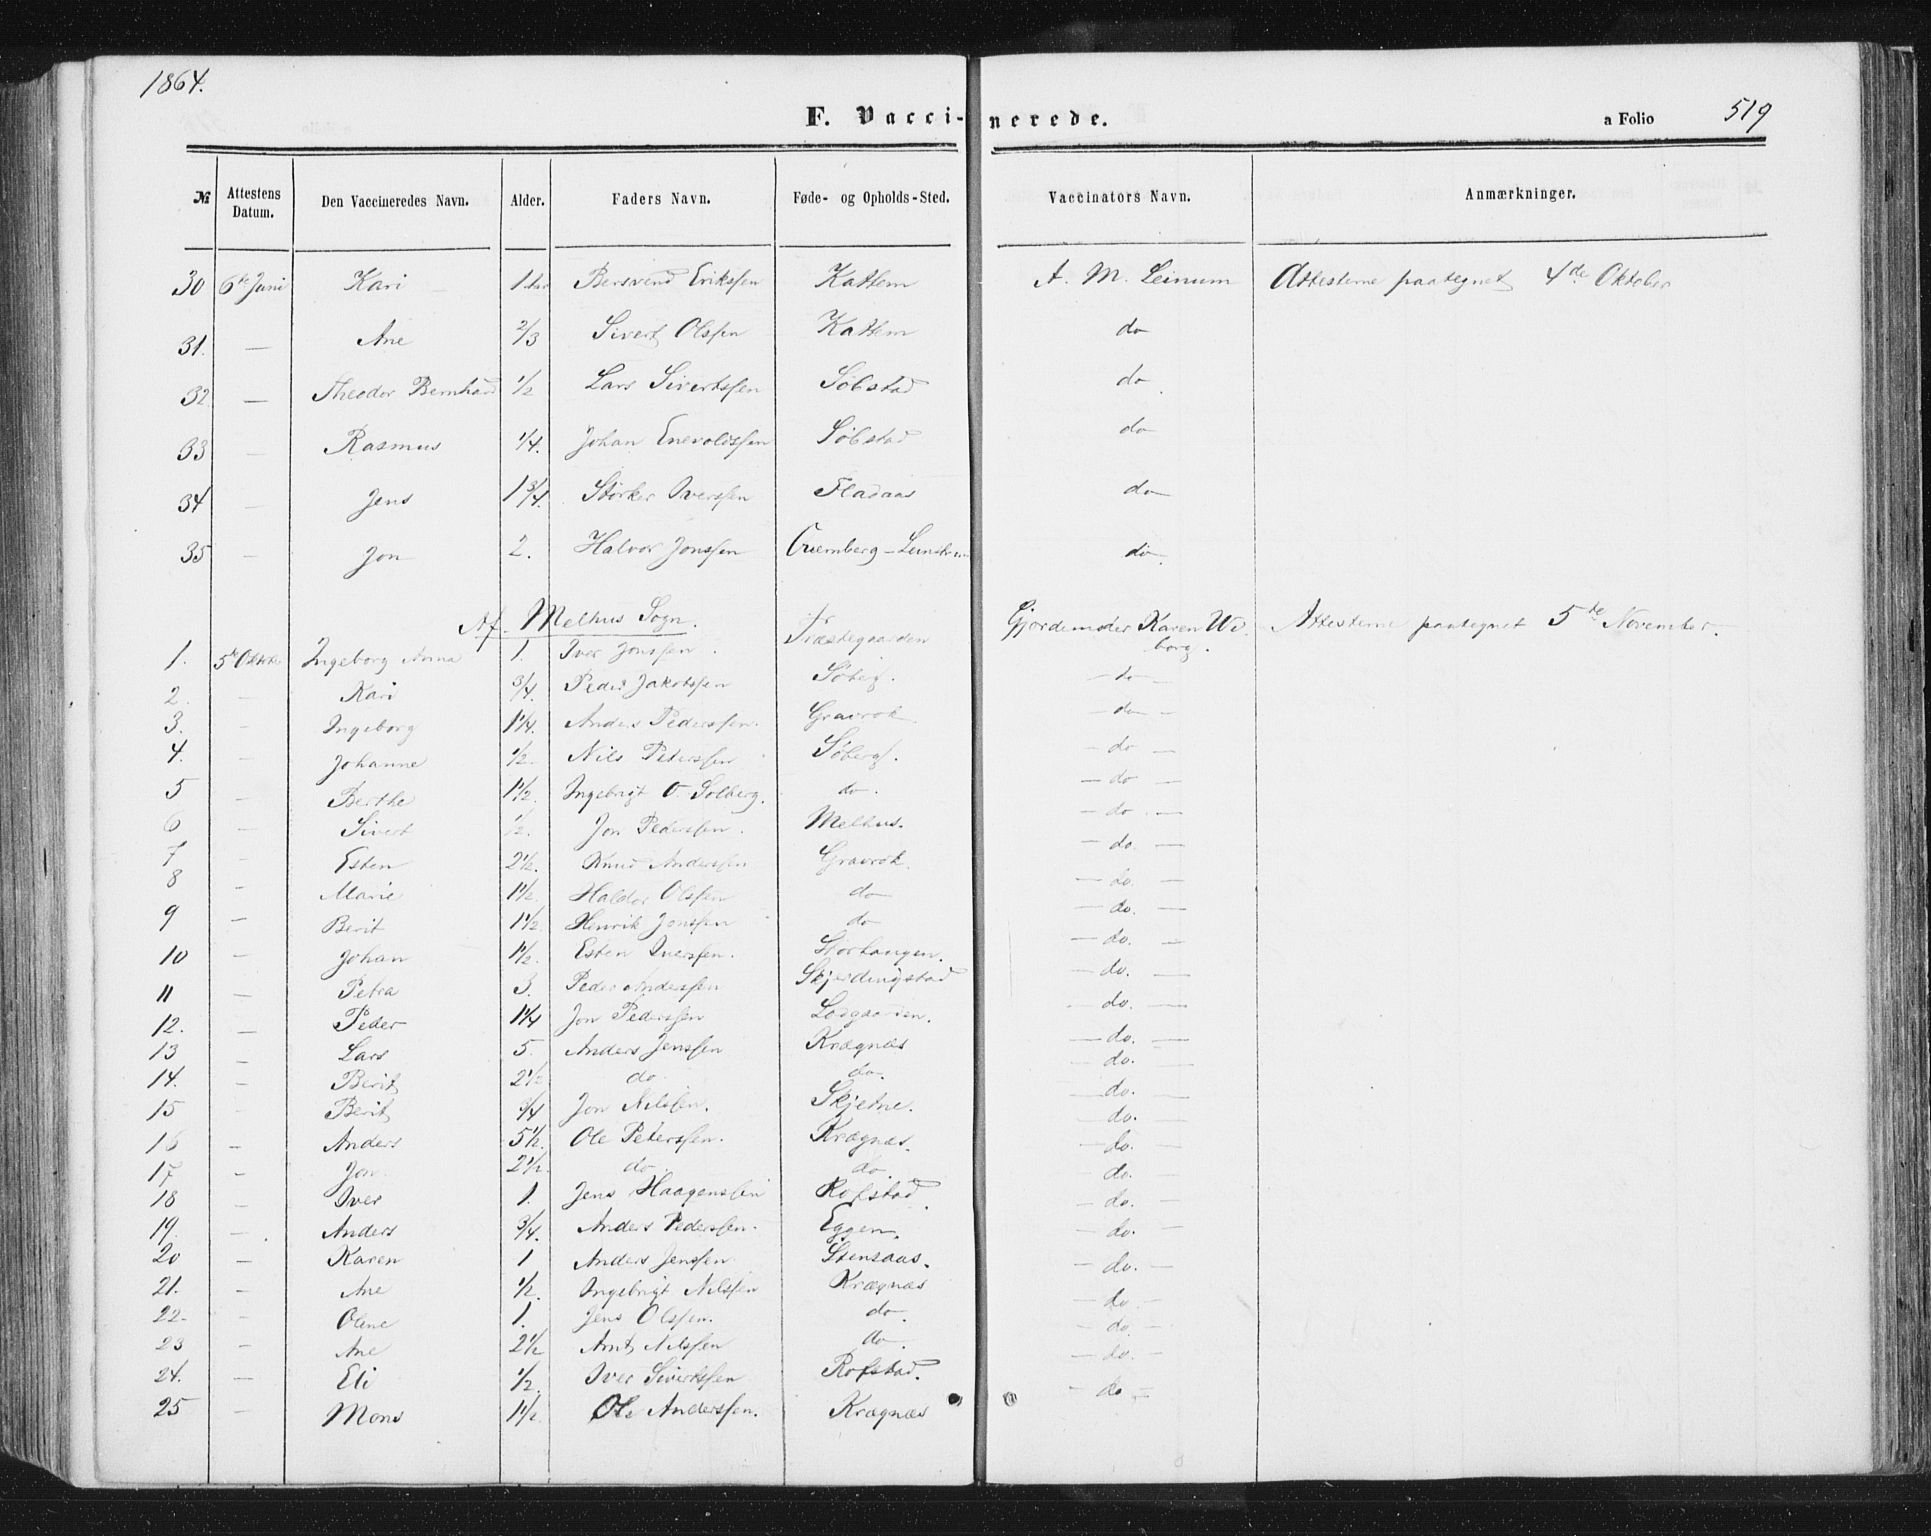 1864.
F. Vaccinerede.
a Folio 519
№ Attestens Datum. Den Vaccineredes Navn. Alder. Faders Navn. Føde- og Opholds-Sted. Vaccinators Navn. Anmærkninger.
30 6te Juni Kari Bersvend Eriksen Kattem A. M. Leinum Attesterne paategnet 4de Oktober
31. — Ane 2/3 Sivert Olsen Kattem do
32 — Theodor Bernhard 1/2 Lars Sivertsen Søbstad do
33 — Rasmus 1/4. Johan Enevoldsen Søbstad do
34 — Jens 1 3/4. Størker Iversen Fladaas do
35 — Jon 2. Halvor Jonsen do.
Af Melhus Sogn.
1. 5te Oktobr Ingeborg Anna 1. Iver Jonsen. Præstegaarden Gjordemoder Karen Wiborg. Attesterne paategnet 5te November.
2. — Kari 3/4. Peder Jakobsen Søberg. — do —
3. — Ingeborg 1 1/4. Anders Pedersen. Gravrok — do —
4. — Johanne 1/2. Nils Petersen Søberg. — do —
5 — Berthe 1 1/2. Ingebrigt O. Solberg. do. — do —
6 — Sivert 1/2. Jon Pedersen. Melhus. — do. —
7 — Esten 2 1/2. Knud Andersen Gravrok. — do. —
8 — Marie 1 1/2. Haldor Olsen do — do. —
9 — Berit 1 1/2. Henrik Jonsen do — do. —
10 — Johan 1 1/2. Esten Iversen. — do. —
11 — Petra 3. Peder Andersen Skjerdingstad — do. —
12. — Peder 1 1/4 Jon Pedersen — do. —
13 — Lars 5. Anders Jensen Krægnæs — do. —
14. — Berit 2 1/2 do. do. — do. —
15 — Berit 3/4 Jon Nilsen. Skjetne. — do. —
16 — Anders 5 1/2. Ole Petersen. Krægnæs. — do. —
17 — Jon 2 1/2. do. do — do. —
18 — Iver 1. Jens Haagensen Rofstad. — do. —
19. — Anders 3/4. Anders Pedersen. Eggen. — do. —
20 — Karen 1 Anders Jensen Stensaas. — do. —
21. — Ane 1/2. Ingebrigt Nilsen Krægnæs — do. —
22. — Olene 1. Jens Olsen. do. — do. —
23 — Ane 2 1/2 Arnt Nilsen do. — do. —
24. — Eli 1/2. Iver Sivertsen Rofstad. — do. —
25 — Mons 1 1/2. Ole Andersen. Krægnæs — do —